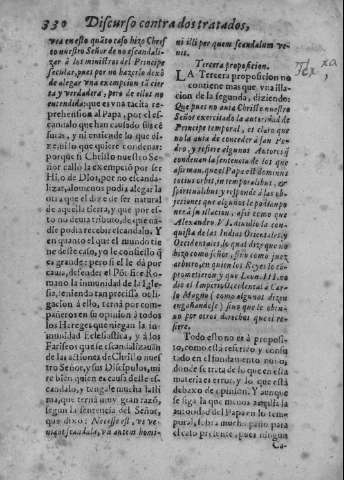 330 Discurso contra dos tratados,
vea en esto quãto caso hizo Chris
to nuestro Señor de no escandali-
zar à los ministros del Principe
secular, pues por no hazerlo dexò
de alegar vna exempcion tã cier
ta y verdadera, pero de ellos no
entendida: que es vna tacita re-
prehension al Papa, por el es-
candalo que han causado sus cẽ
suras, y ni entiende lo que di-
ze, ni lo que quiere condenar:
porque si Christo nuestro Se-
ñor callò la exempciõ por ser
Hijo de Dios, por no escanda-
lizar, alomenos podia alegar la
otra que el dize de ser natural
de aquella tierra, y que por es-
to no devia tributo, de que na-
die podia recebir escandalo. Y
en quanto el que el mundo tie
ne deste caso, yo le consiello q̃
es grande: pero si el le dà por
causa, defender el Põtifice Ro-
mano la inmunidad de la Igle-
sia, teniendo tan precissa obli-
gacion à ello, terná por com-
pañeros en su opinion à todos
los Hereges que niegan la in-
munidad Ecclesiastica, y à los
Fariseos que se escandalizavã
de las acciones de Christo nues
tro Señor, y sus Discipulos, mi
re bien quien es causa deste es-
candalo, y tengale mucha lasti
ma, que terná muy gran razõ,
segun la sentencia del Señor,
que dixo: Necesse est, vt ve-
niant scandala, væ autem homi-
ni illi per quem scandalum ve-
nit.
Tercera proposicion.
LA Tercera proposicion no
contiene mas que vna illa-
cion de la segunda, diziendo:
Que pues no auia Christo nuestro
Señor exercitado la autoridad de
Principe temporal, es claro que
no la auia de conceder à san Pe-
dro, y refiere algunos Autores q̃
condenan la sentencia de los que
afirman, que el Papa est dominus
totius orbis, in temporalibus, &
spiritualibus y responde à las ob-
jeciones que algunos le podian po-
ner à su illacion, assi como que
Alexandro VI. diuidio la con-
quista de las Indias Orientales, y
Occidentales, lo qual dize que no
hizo como señor, sino como juez
arbitro, en quien los Reyes lo com-
prometieron y que Leon III. no
dio el Imperio Occidental à Car-
lo Magno (como algunos dizen
engañandose) sino que le obtu-
uo por otros derechos que el re-
fiere.
Todo esto no es à proposi-
to, como està referido y confu
tado en el fundamento nono,
donde se trata de lo que en esta
materia es error, y lo que està
debaxo de opinion. Y aunque
se siga la que menos amplia la
autoridad del Papa en lo tem-
poral, sobra mucho paño para
el caso presente, pues ningun
Ca-